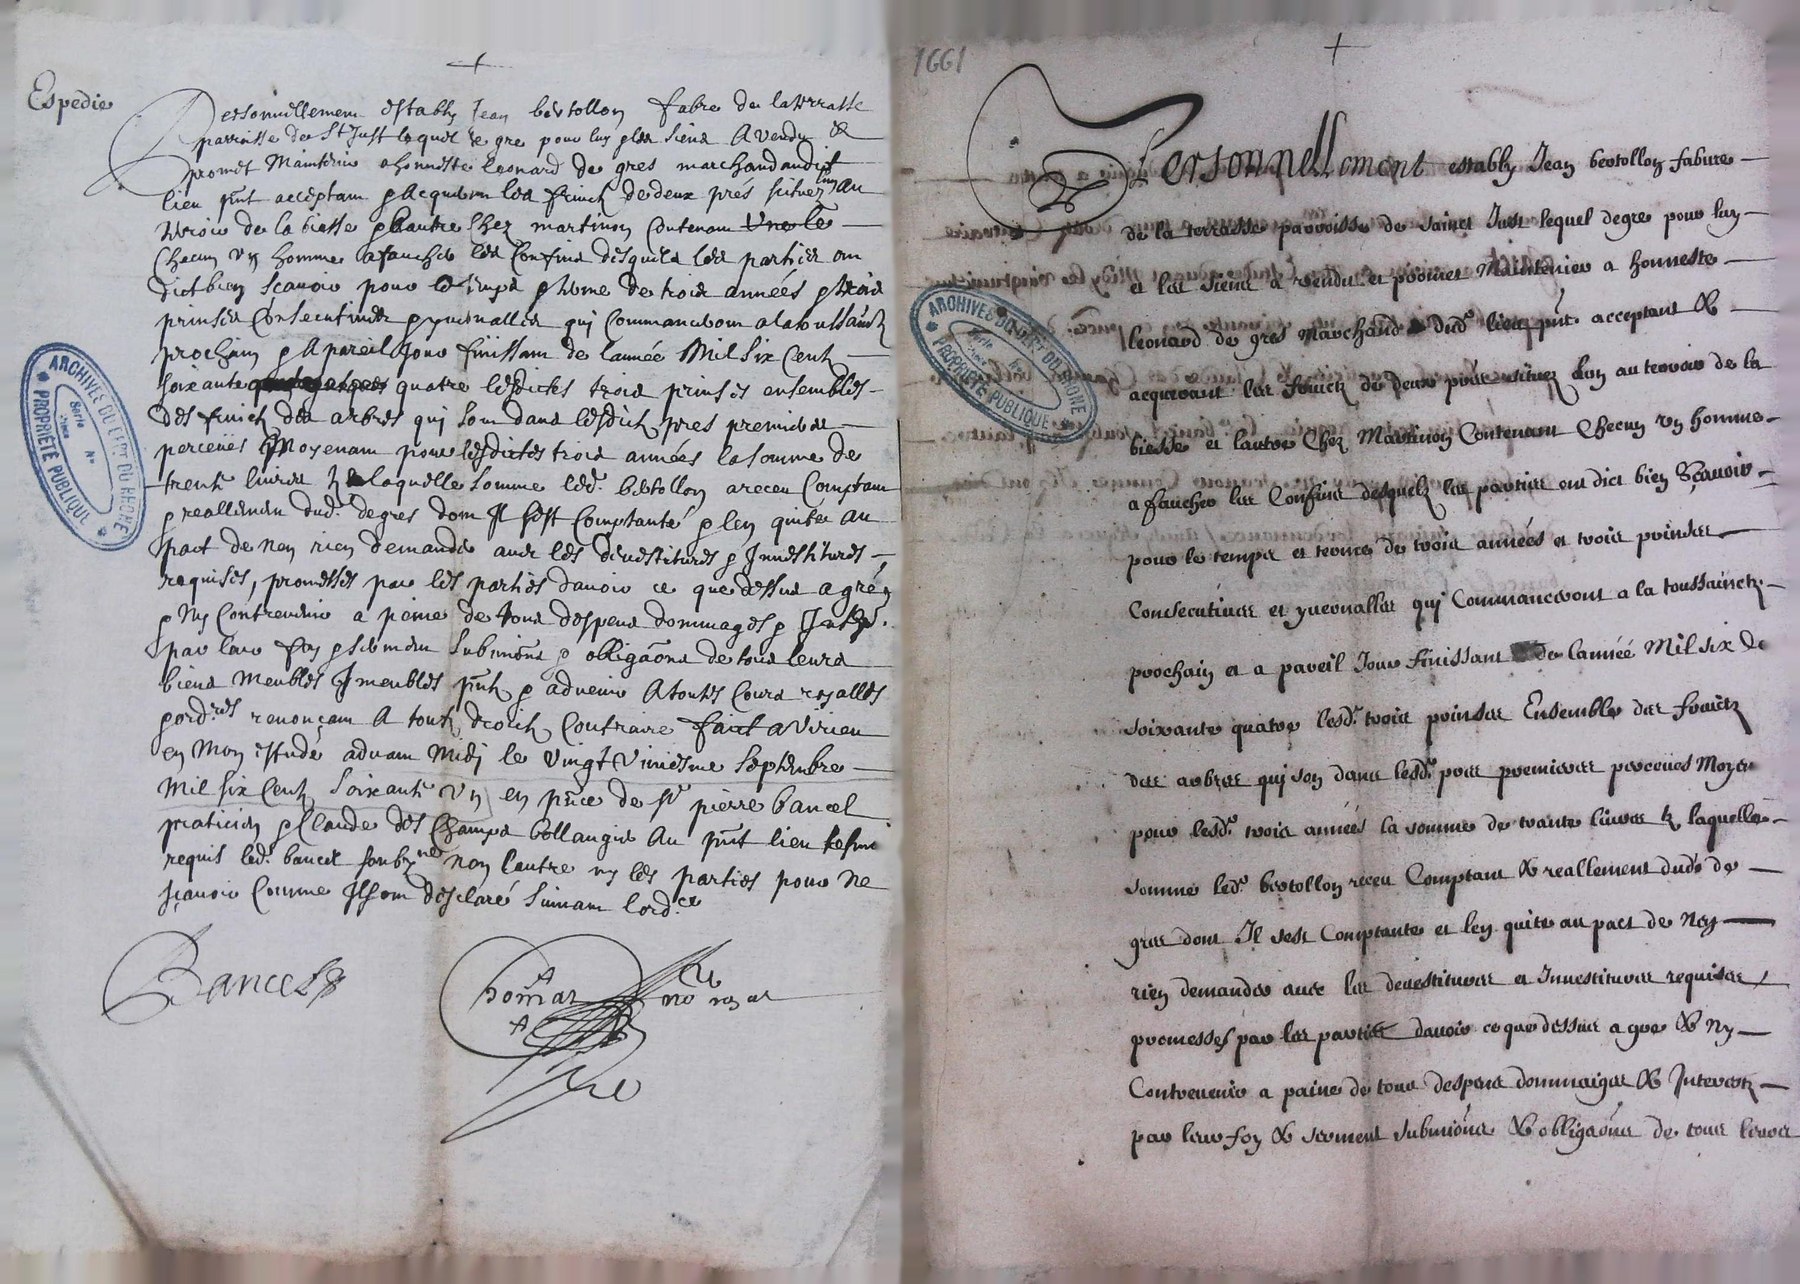 Espedie
Personnellement estably Jean bertollon fabre de laterrasse
parroisse de St Just lequel de gre pour luy & les siens A vendu &
promet Maintenir a honneste leonard de gres marchand audict
lieu pnt acceptant & Acquerant les fruictz de deux prés scituez lun Au
terroir de la biesse & lautre Chez martinon Contenant Une le
Checun un homme a faucher les Confins desquels les parties ont
dict bien scavoir pour le temps & terme de trois années & trois
prinses Consecutives & yvernalles qui Commanceront a la toussainctz
prochain & A pareil Jour finissant de l'année Mil six Centz
soixante quatre lesdictes trois prinses ensembles
des fruictz des arbres qui sont dans lesdictz pres premieres
perceues Moyenant pour lesdictes trois années la somme de
trente livres tz laquelle somme led. bertollon a receu Comptant
& reallement dud. degres dont Il sest Comptanté & len quitte au
pact de nen rien demander avec les devestitures & Investitures
requises, promesses par les parties davoir ce que dessus a gré &
Ny Contrevenir a peine de tous despens dommages & Intz.
par leur foy & serment submions & obligaons de tous leurs
biens meubles Imeubles pntz & advenir A toutes Cours royalles
& ordres renonçant A toutz droictz Contraire faict a Virieu
en Mon estude advant Midi le vingt uniesme septembre
Mil six Centz soixante un en pnce de sr pierre bancel
praticien & Claude des Champs bollangier Au pnt lieu tesmi
requis led. bancel soubzne non lautre ny les parties pour ne
sçavoir Comme Ils ont desclaré suivant lord.ce
Bancel
Thomas nore royal
1661
Personnellement estably Jean bertollon fabvre
de la terrasse parroisse de sainct Just lequel degre pour luy
et les siens a vendu et promet Maintenir a honneste
leonard de gres marchand dud. lieu pnt acceptant &
acquerant les fruictz de deux prés situez lun au terroir de la
biesse et lautre Chez Martinon Contenant Checun un homme
a faucher les Confins desquelz les parties ont dict bien sçavoir
pour le temps et termes de trois années et trois prinses
Consecutives et yvernalles qui Commanceront a la toussainctz
prochain et a pareil Jour finissant de lannéé Mil six Ce
soixante quatre lesd. trois prinses Ensemble des fruictz
des arbres qui son dans lesd. prés premieres perceues Moyen
pour lesd. trois années la somme de trante livres tz laquelle
somme led. bertollon receu Comptant & reallement dud. de
gres dont Il sest Comptante et len quitte au pact de Nen
rien demander avec les devestitures et Investitures requises
promesses par les parties davoir ce que dessus a gre & Ny
Contrevenir a paine de tous despens dommaiges & Interestz
par leur foy & serment submions & obligaons de tous leurs
ARCHIVES DU DEPT DU RHONE
PROPRIÉTÉ PUBLIQUE
ARCHIVES DU DEPT DU RHONE
PROPRIÉTÉ PUBLIQUE